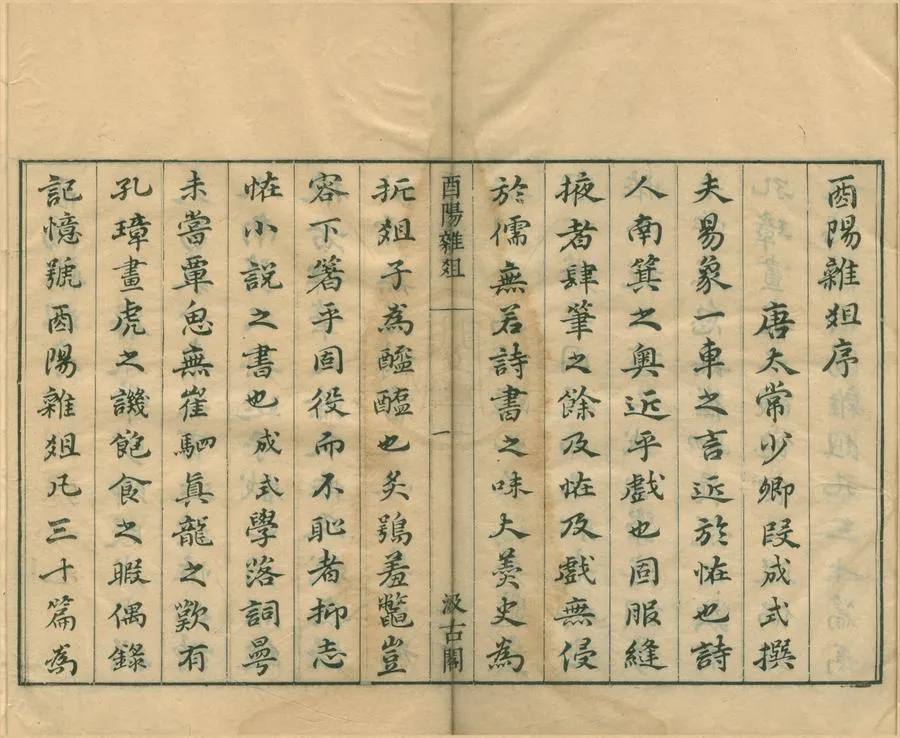 酉陽雜俎序
唐太常少卿段成式撰
夫易象一車之言近於恠也詩
人南箕之奧近乎戲也固服縫
掖者肆筆之餘及恠及戲無侵
於儒無若詩書之味大羮史為
折俎子為醯醢也炙鴞羞鼈豈
容下箸乎固役而不恥者抑志
恠小説之書也成式學落詞曼
未嘗覃思無崔駰真龍之歎有
孔璋畫虎之譏飽食之暇偶錄
記憶號酉陽雜俎凡三十篇為
酉陽雜俎
一
汲古閣